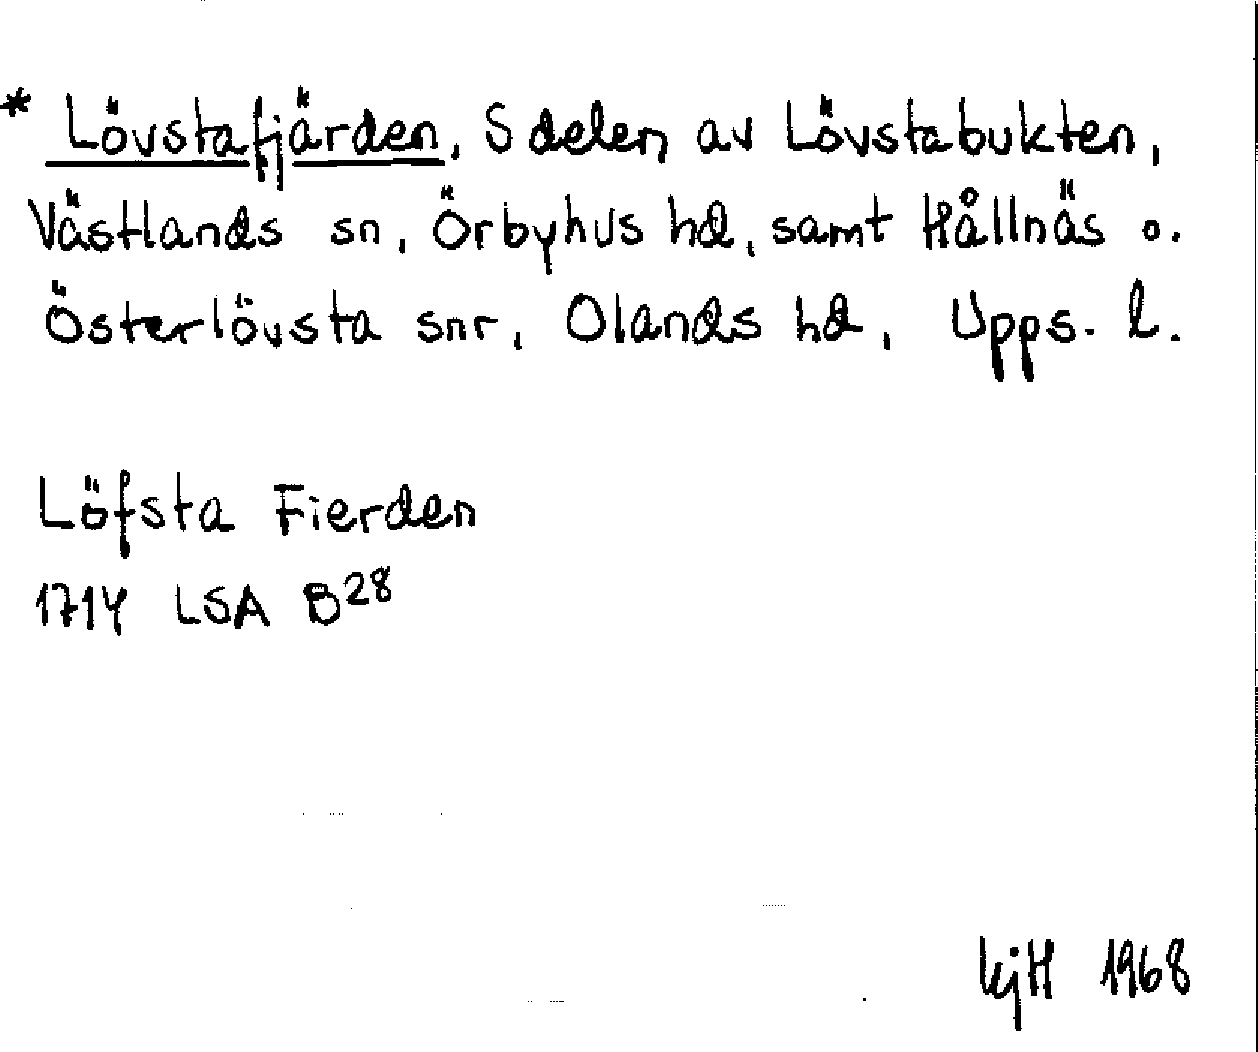 * Lövstafjärden, S delen av Lövstabukten,
Västlands sn, Örbyhus hd, samt Hållnäs o.
Österlövsta snr, Olands hd, Upps. l.
Löfsta Fierden
1714 LSA B28
kjH 1968